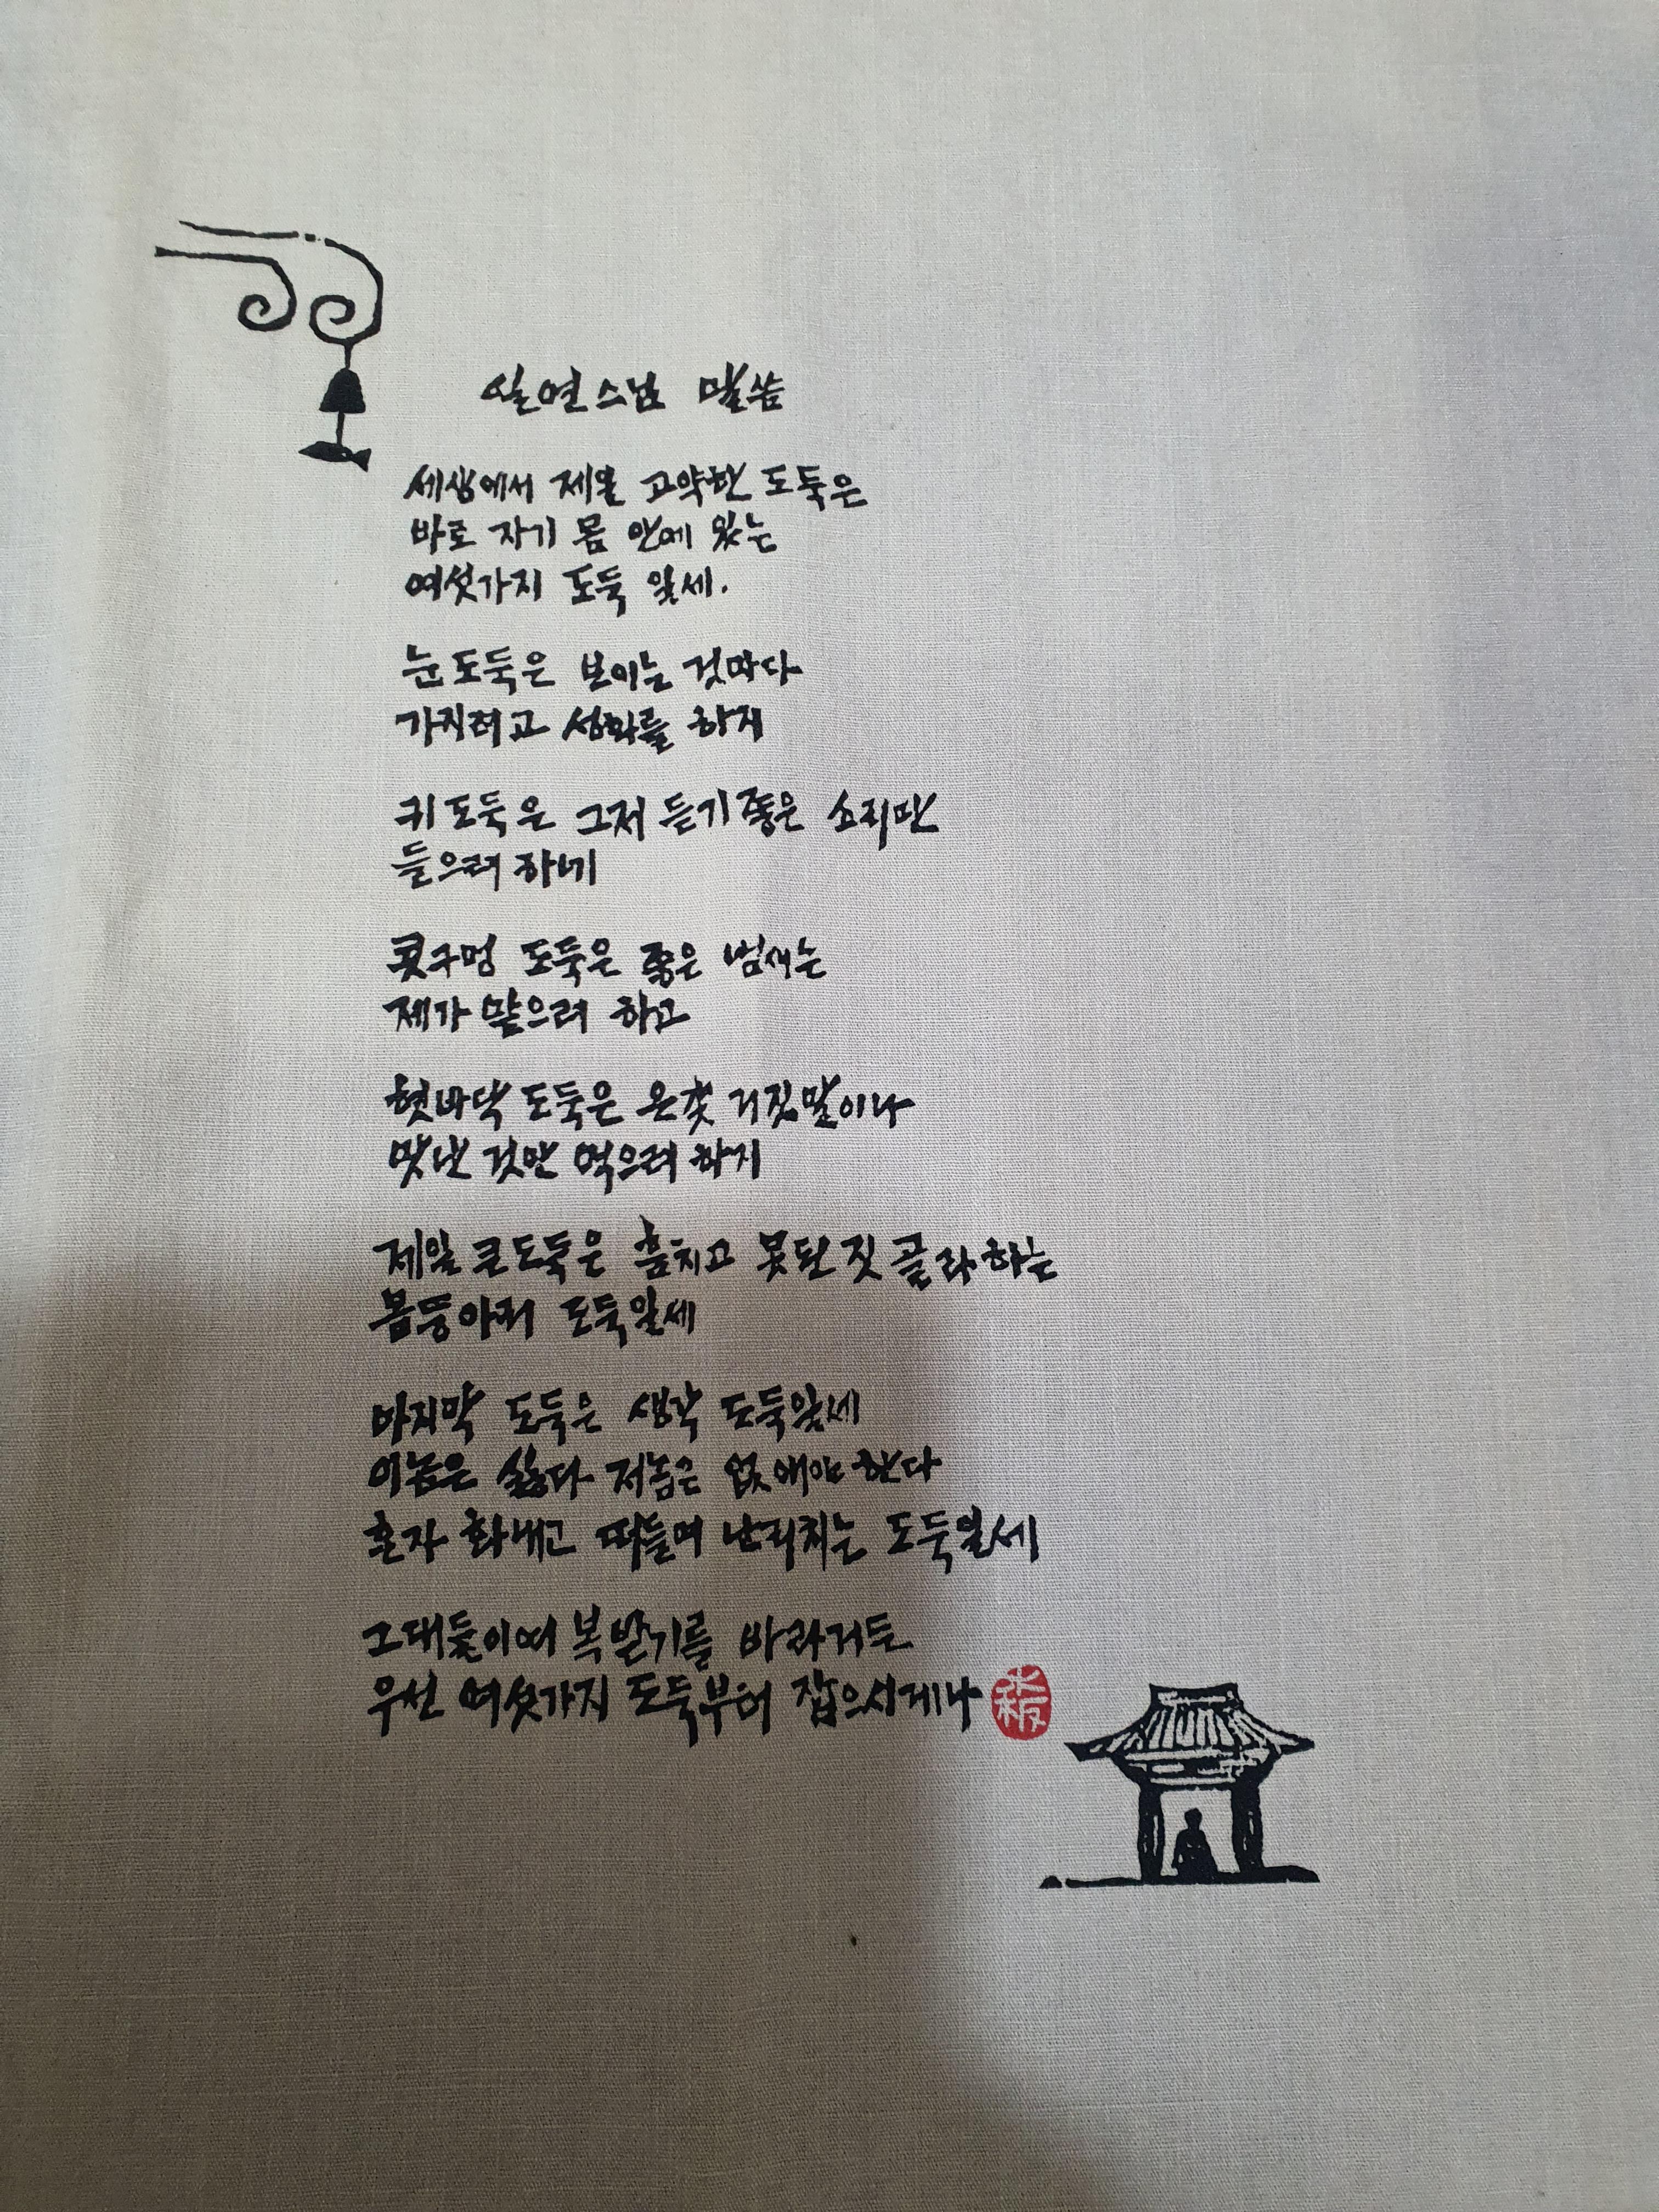 일연스님 말씀
세상에서 제일 고약한 도둑은
바로 자기 몸 안에 있는
여섯가지 도둑 일세.
눈도둑은 보이는 것마다
가지려고 성화를 하지
귀도둑은 그저 듣기 좋은 소리만
들으려 하네
콧구멍 도둑은 좋은 냄새는
제가 맡으려 하고
혓바닥 도둑은 온갖 거짓말이나
맛난 것만 먹으려 하지
제일 큰도둑은 훔치고 못된 짓 골라하는
몸뚱아리 도둑일세
마지막 도둑은 생각 도둑일세
이놈은 싫다 저놈은 없애야 한다
혼자 화내고 떠들며 난리치는 도둑일세
그대들이여 복 받기를 바라거든
우선 여섯가지 도둑부터 잡으시게나